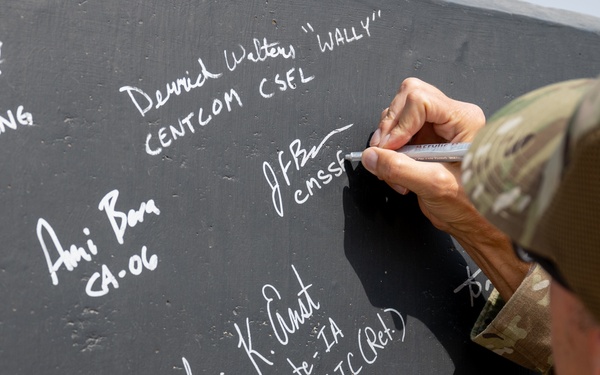 Derrick Walters "WALLY"
CENTCOM CSEL
NG
JFB
CMSSF
Ami Bera
CA-06
K. Ernst
te-IA
IC (Ret.)